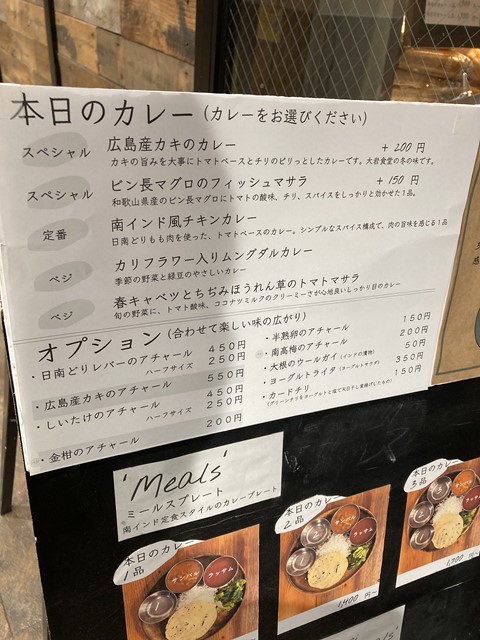 本日のカレー（カレーをお選びください）
スペシャル 広島産カキのカレー + 200 円
カキの旨みを大事にトマトベースとチリのピリっとしたカレーです。大岩食堂の冬の味です。
スペシャル ビン長マグロのフィッシュマサラ + 150 円
和歌山県産のビン長マグロにトマトの酸味、チリ、スパイスをしっかりと効かせた1品。
定番 南インド風チキンカレー
日南どりもも肉を使った、トマトベースのカレー。シンプルなスパイス構成で、肉の旨味を感じる1品
ベジ カリフラワー入りムングダルカレー
季節の野菜と緑豆のやさしいカレー
ベジ 春キャベツとちぢみほうれん草のトマトマサラ
旬の野菜に、トマト酸味、ココナツミルクのクリーミーさが心地良いしっかり目のカレー
オプション（合わせて楽しい味の広がり）
・日南どりレバーのアチャール 450円
ハーフサイズ 250円
・広島産カキのアチャール 550円
・しいたけのアチャール 450円
ハーフサイズ 250円
・金柑のアチャール 200円
・半熟卵のアチャール 150円
・南高梅のアチャール 200円
・大根のウールガイ（インドの漬物） 50円
・ヨーグルトライタ（ヨーグルトサラダ） 350円
・カードチリ 150円
（グリーンチリをヨーグルトと塩で天日干し素揚げしたもの）
'Meals'
ミールスプレート
南インド定食スタイルのカレープレート
本日のカレー
1品
サンバル
ラッサム
本日のカレー
2品
サンバル
ラッサム
1,400 円~
本日のカレー
3品
サンバル
ラッサム
1,700 円~